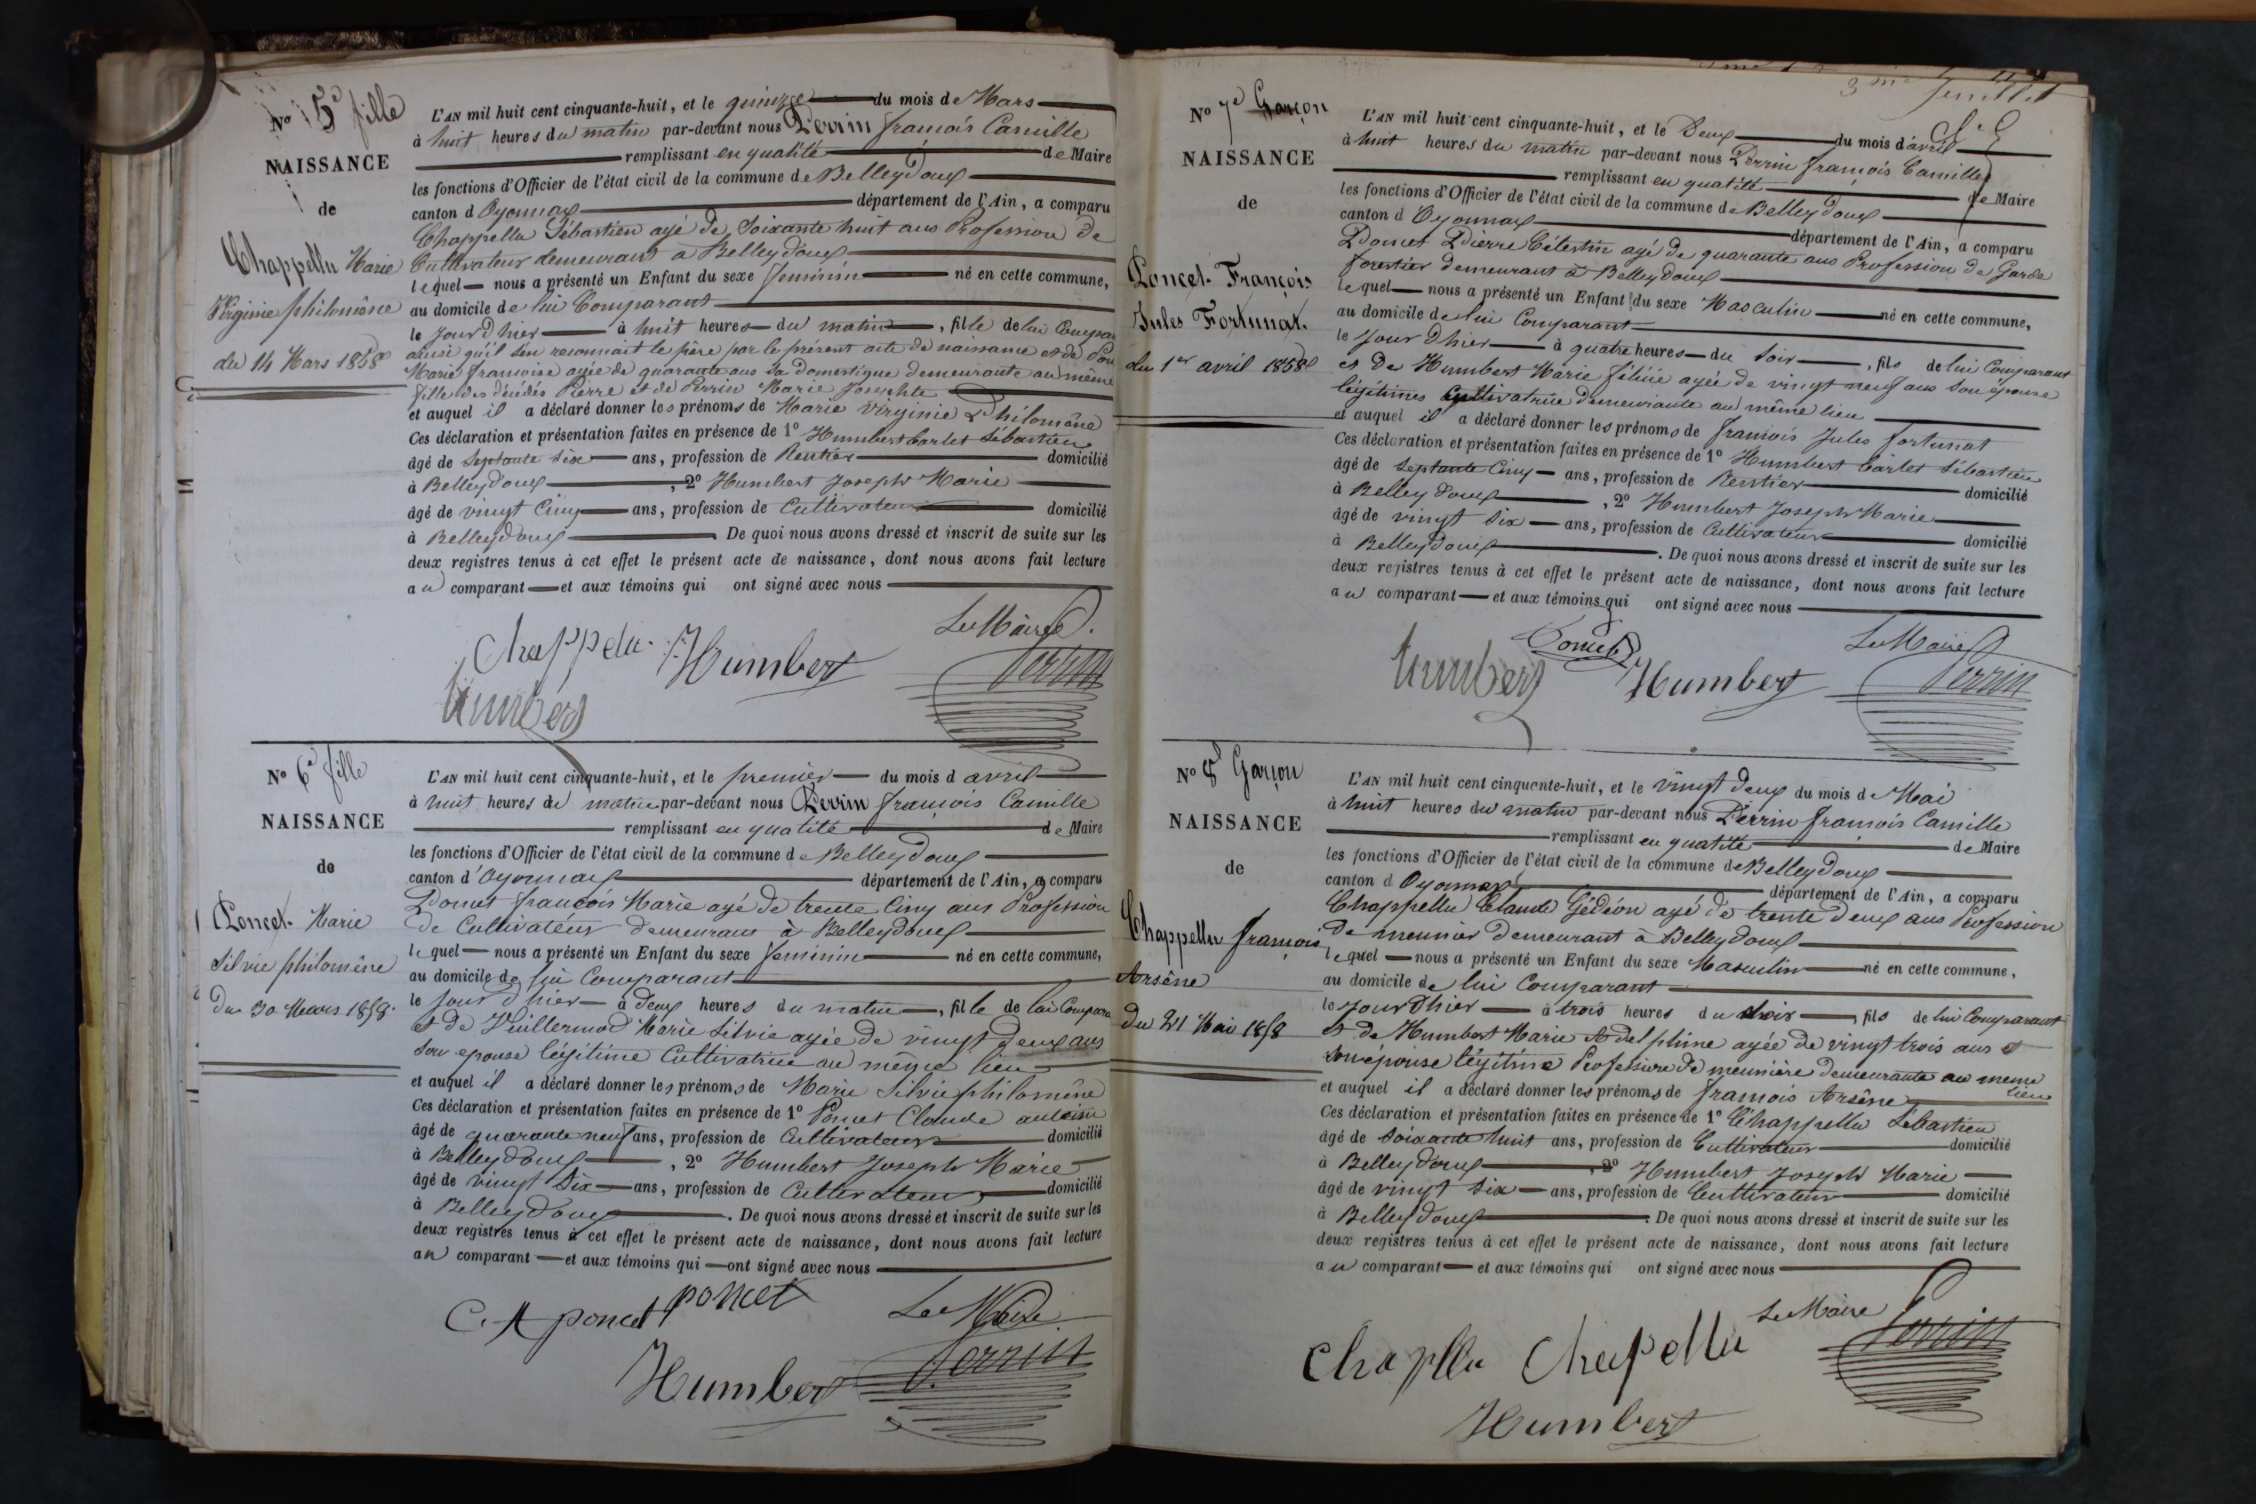 No 5e fille
NAISSANCE
de
Chappellu Marie
Virginie philomène
du 14 Mars 1858
L'AN mil huit cent cinquante-huit, et le quinze du mois de Mars
à huit heures du matin par-devant nous Perrin françois Camille
remplissant en qualité de Maire
les fonctions d'Officier de l'état civil de la commune de Belleydoux
canton d Oyonnax département de l'Ain, a comparu
Chappellu Sébastien agé de Soixante huit ans Profession de
Cultivateur demeurant à Belleydoux
lequel nous a présenté un Enfant du sexe féminin né en cette commune,
au domicile de lui Comparant
le jour d'hier à huit heures du matin, fille de lui Compar
ainsi qu'il s'en reconnait le père par le présent acte de naissance et de
Marie françoise agée de quarante ans sa domestique demeurante au même
fille des décédés Pierre et de Perrin Marie Josephte
et auquel il a déclaré donner les prénoms de Marie Virginie Philomène
Ces déclaration et présentation faites en présence de 1° Humbert barlet Sébastien
âgé de Septante Six ans, profession de Rentier domicilié
à Belleydoux, 2° Humbert Joseph Marie
âgé de vingt Cinq ans, profession de Cultivateur domicilié
à Belleydoux De quoi nous avons dressé et inscrit de suite sur les
deux registres tenus à cet effet le présent acte de naissance, dont nous avons fait lecture
au comparant et aux témoins qui ont signé avec nous
Le Maire.
Chappellu Humbert Perrin
Humbert
No 6e fille
NAISSANCE
de
Poncet Marie
Silvie philomène
Du 30 Mars 1858.
L'AN mil huit cent cinquante-huit, et le premier du mois d avril
à huit heures du matin par-devant nous Perrin françois Camille
remplissant en qualité de Maire
les fonctions d'Officier de l'état civil de la commune de Belleydoux
canton d'Oyonnax département de l'Ain, a comparu
Poncet françois Marie agé de trente Cinq ans Profession
de Cultivateur demeurant à Belleydoux
lequel nous a présenté un Enfant du sexe féminin né en cette commune,
au domicile de lui Comparant
le jour d'hier à deux heures du matin, fille de lui Compara
et de Vuillermod Marie Silvie agée de vingt deux ans
son epouse légitime Cultivatrice au même lieu
et auquel il a déclaré donner les prénoms de Marie Silvie philomène
Ces déclaration et présentation faites en présence de 1° Poncet Claude
âgé de quarante neuf ans, profession de Cultivateur domicilié
à Belleydoux, 2° Humbert Joseph Marie
âgé de vingt Six ans, profession de Cultivateur domicilié
à Belleydoux. De quoi nous avons dressé et inscrit de suite sur les
deux registres tenus à cet effet le présent acte de naissance, dont nous avons fait lecture
au comparant et aux témoins qui ont signé avec nous
C. A poncet poncet Le Maire
Humbert Perrin
3me feuillet
No 7e Garçon
NAISSANCE
de
Poncet François
Jules Fortunat.
du 1er avril 1858
L'AN mil huit cent cinquante-huit, et le Deux du mois d'avril
à huit heures du matin par-devant nous Perrin françois Camille
remplissant en qualité de Maire
les fonctions d'Officier de l'état civil de la commune de Belleydoux
canton d Oyonnax département de l'Ain, a comparu
Poncet Pierre Célestin agé de quarante ans Profession de Garde
forestier demeurant à Belleydoux
lequel nous a présenté un Enfant du sexe Masculin né en cette commune,
au domicile de lui Comparant
le jour d'hier à quatre heures du Soir, fils de lui Comparant
et de Humbert Marie félicie agée de vingt neuf ans Son épouse
légitimes Cultivatrice demeurante au même lieu
et auquel il a déclaré donner les prénoms de françois Jules fortunat
Ces déclaration et présentation faites en présence de 1° Humbert barlet Sébastien
âgé de Septante Cinq ans, profession de Rentier domicilié
à Belleydoux, 2° Humbert Joseph Marie
âgé de vingt Six ans, profession de Cultivateur domicilié
à Belleydoux. De quoi nous avons dressé et inscrit de suite sur les
deux registres tenus à cet effet le présent acte de naissance, dont nous avons fait lecture
au comparant et aux témoins qui ont signé avec nous
Poncet Le Maire
Humbert Humbert Perrin
No 8e Garçon
NAISSANCE
de
Chappellu françois
Arsène
Du 21 Mai 1858
L'AN mil huit cent cinquante-huit, et le vingt deux du mois de Mai
à huit heures du matin par-devant nous Perrin françois Camille
remplissant en qualité de Maire
les fonctions d'Officier de l'état civil de la commune de Belleydoux
canton d Oyonnax département de l'Ain, a comparu
Chappellu Claude Gédéon agé de trente deux ans Profession
de meunier demeurant à Belleydoux
lequel nous a présenté un Enfant du sexe Masculin né en cette commune,
au domicile de lui Comparant
le jour d'hier à trois heures du Soir, fils de lui Comparant
et de Humbert Marie Adelphine agée de vingt trois ans
Son epouse légitime Profession de meunière demeurante au meme
lieu
et auquel il a déclaré donner les prénoms de françois Arsène
Ces déclaration et présentation faites en présence de 1° Chappellu Sébastien
âgé de Soixante huit ans, profession de Cultivateur domicilié
à Belleydoux, 2° Humbert Joseph Marie
âgé de vingt Six ans, profession de Cultivateur domicilié
à Belleydoux. De quoi nous avons dressé et inscrit de suite sur les
deux registres tenus à cet effet le présent acte de naissance, dont nous avons fait lecture
au comparant et aux témoins qui ont signé avec nous
Le Maire
Chapllu Chapellu Perrin
Humbert